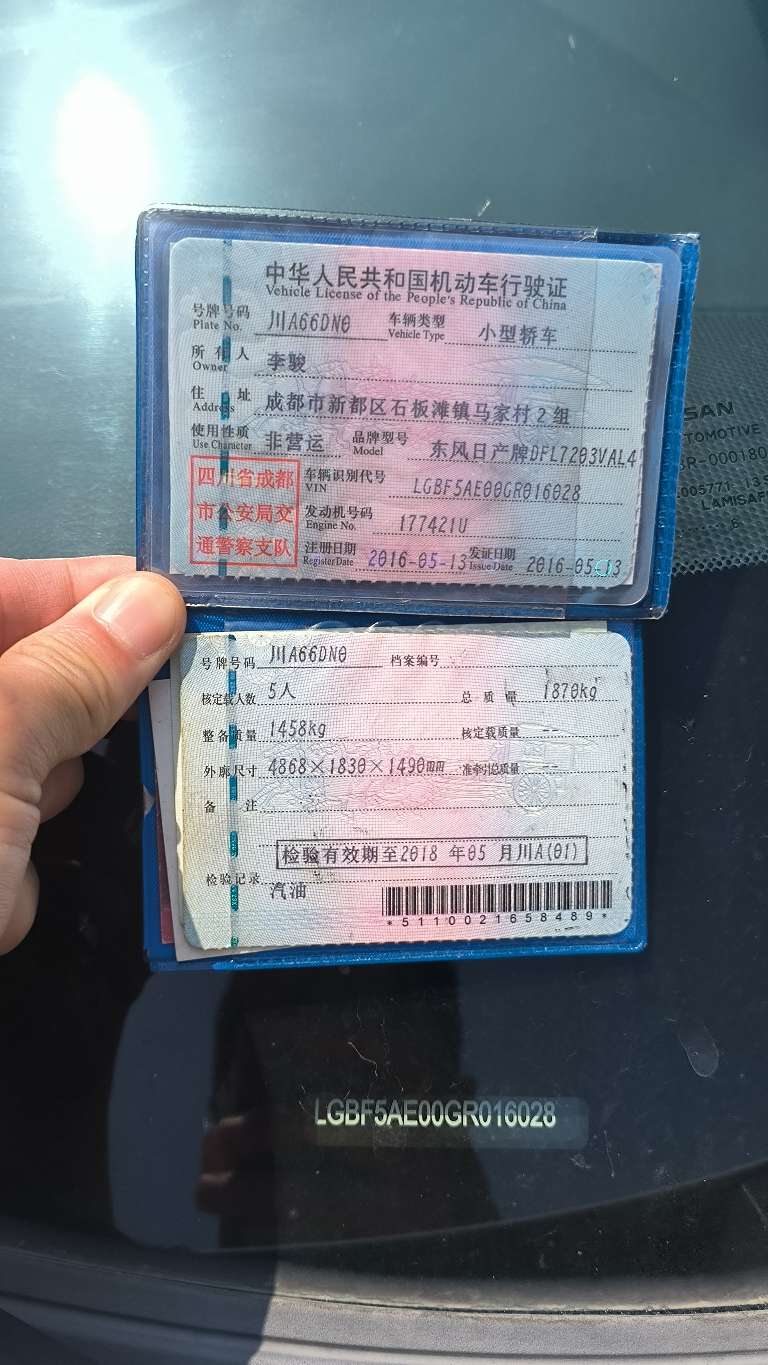 中华人民共和国机动车行驶证
Vehicle License of the People's Republic of China
号牌号码 川A66DN0 车辆类型 小型轿车
Plate No. Vehicle Type
所有人 李骏
Owner
住址 成都市新都区石板滩镇马家村2组
Address
使用性质 非营运 品牌型号 东风日产牌DFL7203VAL4
Use Character Model
四川省成都
市公安局交
通警察支队
车辆识别代号 LGBF5AE00GR016028
VIN
发动机号码 177421U
Engine No.
注册日期 2016-05-13 发证日期 2016-05-13
Register Date Issue Date
号牌号码 川A66DN0 档案编号
核定载人数 5人 总质量 1870kg
整备质量 1458kg 核定载质量 --
外廓尺寸 4868×1830×1490mm 准牵引总质量 --
备注
检验有效期至2018年05月川A(01)
检验记录 汽油
*5110021658489*
SSAN
TOMOTIVE
R-000180
005771
LAMISAF
LGBF5AE00GR016028